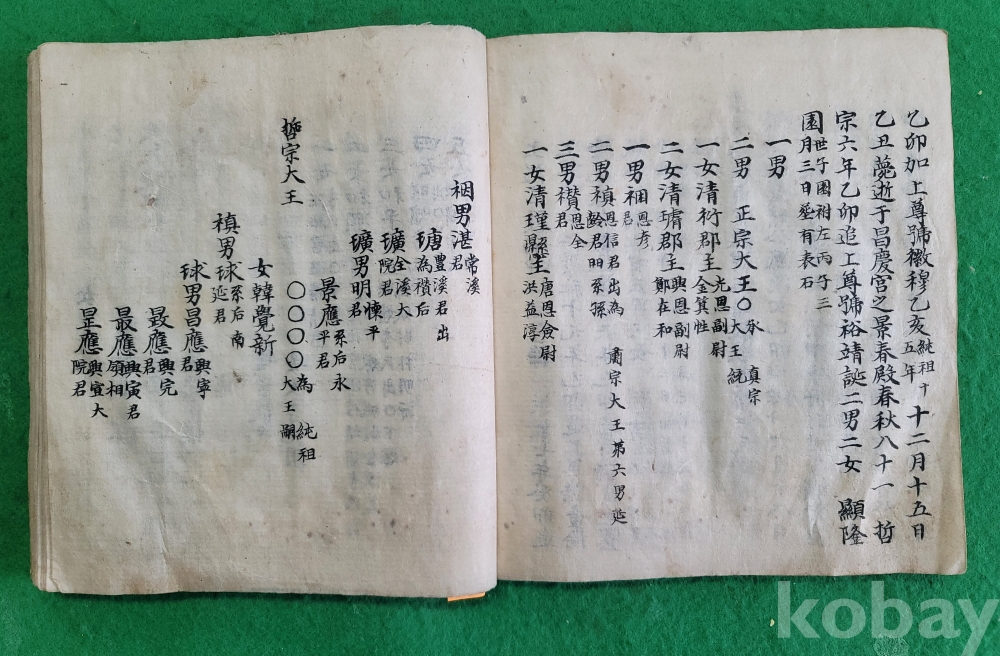 乙卯加上尊號徽穆乙亥純祖十五年十二月十五日
乙丑薨逝于昌慶宮之景春殿春秋八十一 哲
宗六年乙卯追上尊號裕靖誕二男二女 顯隆
園世子園祔左丙子三月三日葬有表石
一男
二男 正宗大王○永 真宗大王統
一女清衍郡主光恩副尉金箕性
二女清璿郡主興恩副尉鄭在和
一男裀恩彥君
二男禛恩信君出為 肅宗大王第六男延齡君昍系孫
三男禶恩全君
一女清瑾縣主唐恩僉尉洪益淳
裀男湛常溪君
瑭豐溪君出為禶后
㼅全溪大院君
㼅男明懷平君
景應系后永平君
哲宗大王 ○○○○為 純祖大王嗣
女韓覺新
禛男球系后南延君
球男昌應興寧君
晸應興完君
最應興寅君原相
昰應興宣大院君
kobay